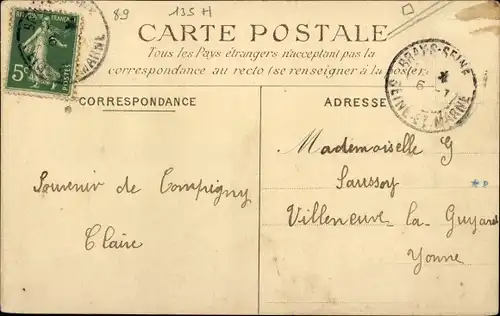 89
135 H
CARTE POSTALE
Tous les Pays étrangers n'acceptant pas la
correspondance au recto (se renseigner à la Poste)
BRAY-S-SEINE
6
SEINE-ET-MARNE
MARNE
5c
POSTES
CORRESPONDANCE
ADRESSE
Mademoiselle G
Saussoy
Villeneuve-la-Guyard
Yonne
Souvenir de Compigny
Claire